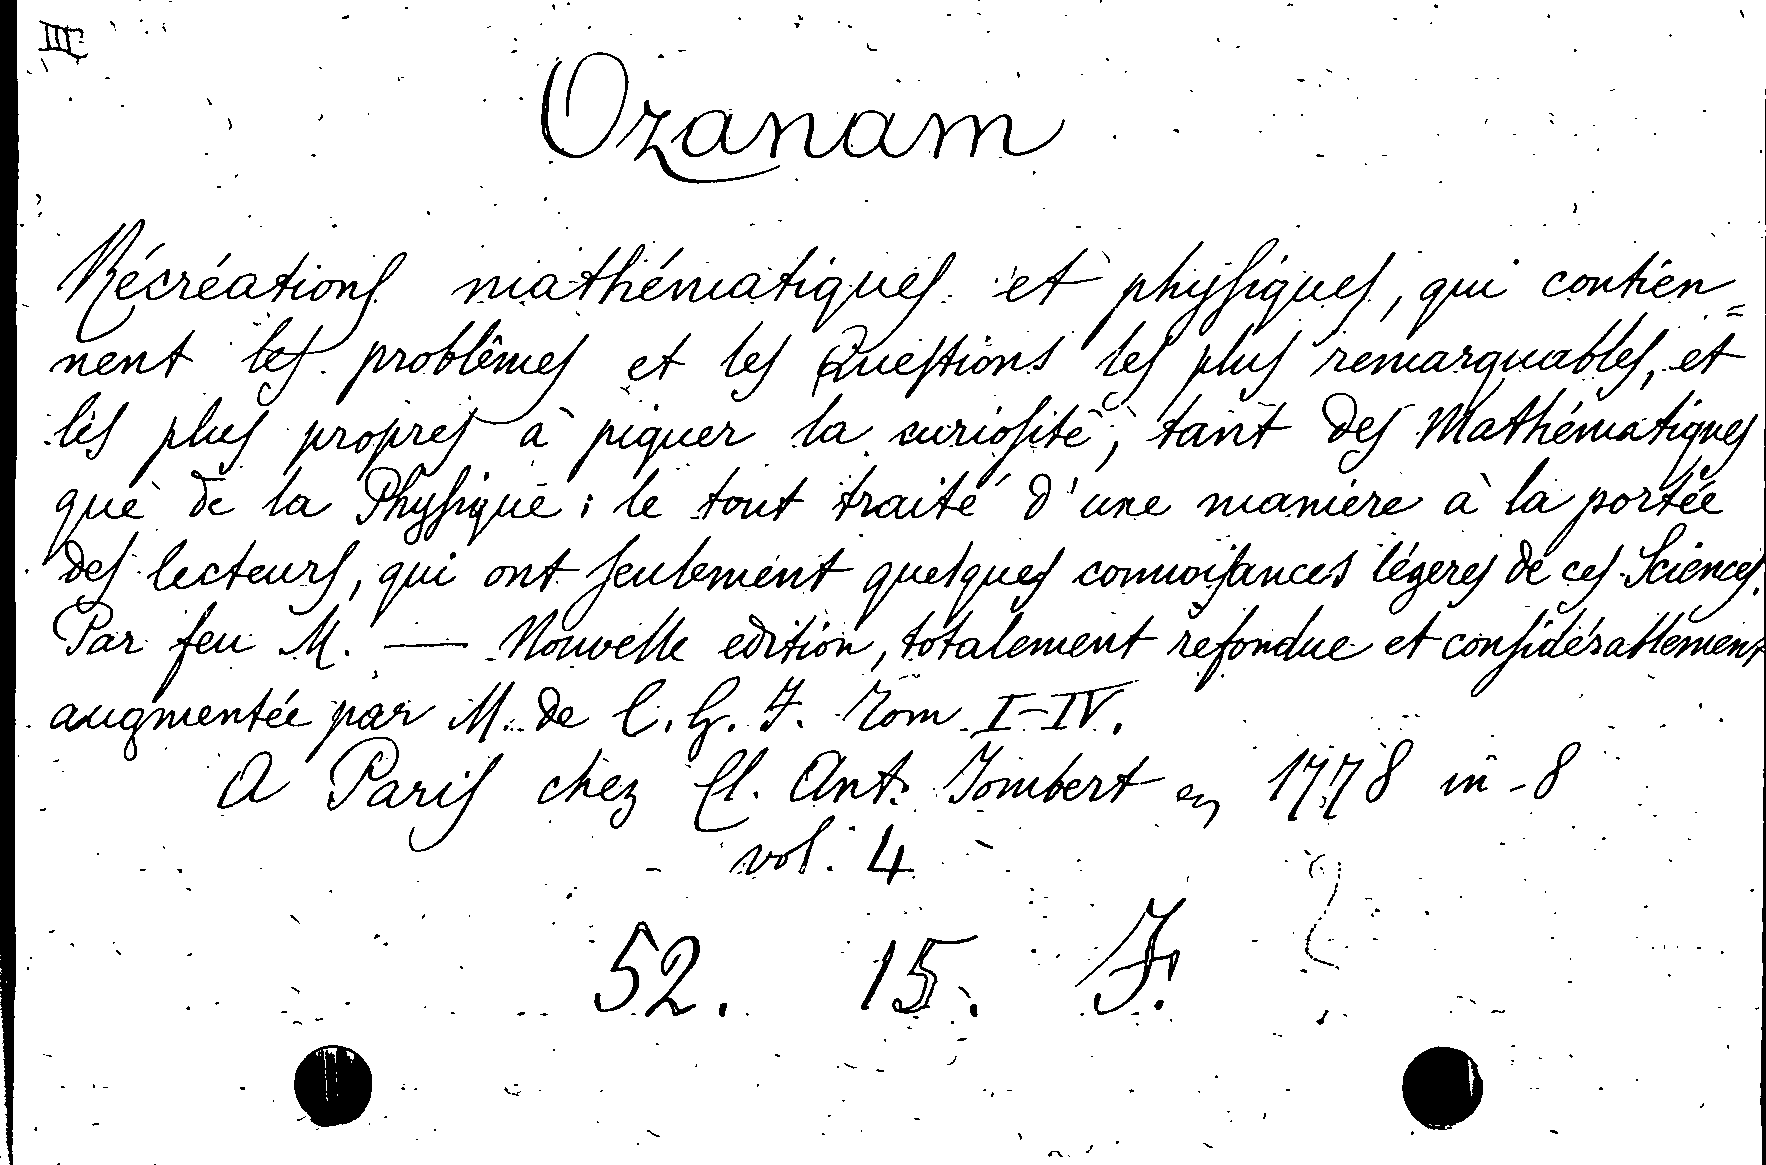 III
Ozanam
Récréations mathématiques et physiques, qui contien=
nent les problêmes et les Questions les plus remarquables, et
les plus propres à piquer la curiosité, tant des Mathématiques
que de la Physique; le tout traité d'une maniere à la portée
des lecteurs, qui ont seulement quelques connoisances légeres de ces Sciences.
Par feu M. — Nouvelle edition, totalement refondue et considérablement
augmentée par M. de C. G. F. Tom I-IV.
A Paris chez Cl. Ant. Jombert en 1778 in-8
vol. 4
52. 15. F.